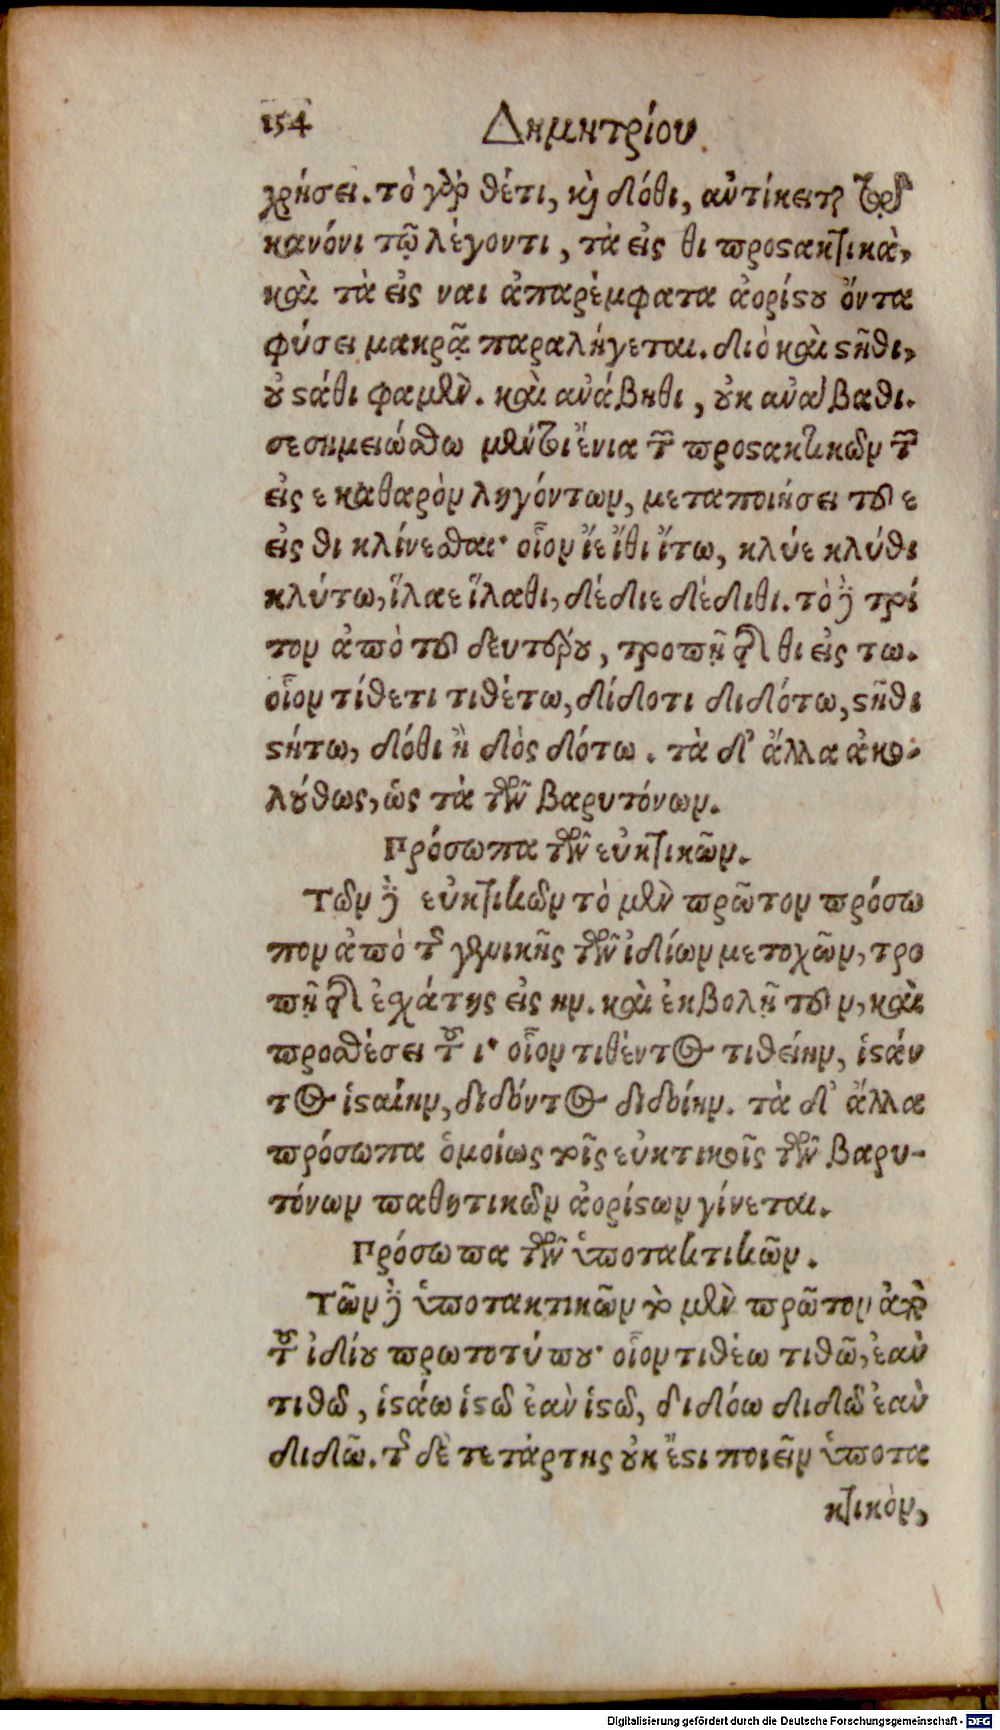 154 Δημητρίου.
χρήσει. τὸ γὰρ θέτι, καὶ δόθι, ἀντίκειται τῷ
κανόνι τῷ λέγοντι, τὰ εἰς θι προςακτικὰ,
καὶ τὰ εἰς ναι ἀπαρέμφατα ἀορίϛου ὄντα
φύσει μακρᾷ παραλήγεται. διὸ καὶ ϛῆθι,
οὐ ϛάθι φαμὲν. καὶ ἀνάβηθι, οὐκ ἀνάβαθι.
σεσημειώσθω μέντοι ἔνια τῶν προςακτικῶν τῶν
εἰς ε καθαρὸν ληγόντων, μεταποιήσει τοῦ ε
εἰς θι κλίνεσθαι· οἷον ἴε ἴθι ἴτω, κλύε κλύθι
κλύτω, ἵλαε ἵλαθι, δέδιε δέδιθι. τὸ δὲ τρί
τον ἀπὸ τοῦ δευτέρου, τροπῇ τῆς θι εἰς τω.
οἷον τίθετι τιθέτω, δίδοτι διδότω, ϛῆθι
ϛήτω, δόθι ἢ δὸς δότω. τὰ δ' ἄλλα ἀκο-
λούθως, ὡς τὰ τῶν βαρυτόνων.
Πρόσωπα τῶν εὐκτικῶν.
Τῶν δὲ εὐκτικῶν τὸ μὲν πρῶτον πρόσω
πον ἀπὸ τῆς γενικῆς τῶν ἰδίων μετοχῶν, τρο
πῇ τῆς ἐσχάτης εἰς ην. καὶ ἐκβολῇ τοῦ ν, καὶ
προσθέσει τοῦ ι· οἷον τιθέντος τιθείην, ἱϛάν
τος ἱϛαίην, διδόντος διδοίην. τὰ δ' ἄλλα
πρόσωπα ὁμοίως τοῖς εὐκτικοῖς τῶν βαρυ-
τόνων παθητικῶν ἀορίϛων γίνεται.
Πρόσωπα τῶν ὑποτακτικῶν.
Τῶν δὲ ὑποτακτικῶν τὸ μὲν πρῶτον ἀπὸ
τοῦ ἰδίου πρωτοτύπου· οἷον τιθέω τιθῶ, ἐὰν
τιθῶ, ἱϛάω ἱϛῶ ἐὰν ἱϛῶ, διδόω διδῶ ἐὰν
διδῶ. τῆς δὲ τετάρτης οὐκ ἔϛι ποιεῖν ὑποτα
κτικὸν,
Digitalisierung gefördert durch die Deutsche Forschungsgemeinschaft - DFG